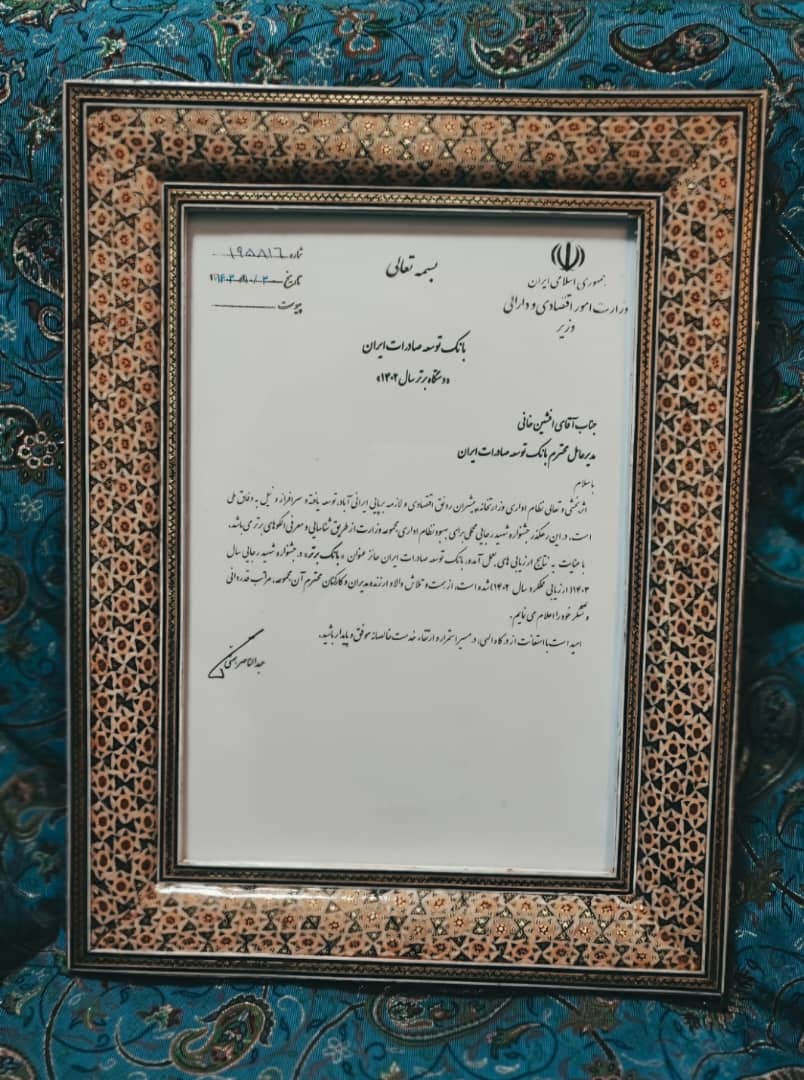 بسمه تعالی
جمهوری اسلامی ایران
وزارت امور اقتصادی و دارائی
وزیر
شماره ۱۹۵۸۱۶
تاریخ
پیوست
بانک توسعه صادرات ایران
«دستگاه برتر سال ۱۴۰۲»
جناب آقای افشین خانی
مدیرعامل محترم بانک توسعه صادرات ایران
با سلام
اثربخشی و تعالی نظام اداری وزارتخانه پیشران رونق اقتصادی و لازمه برپایی ایرانی آباد، توسعه یافته و سرافراز و نیل به وفاق ملی
است. در این رهگذر جشنواره شهید رجایی محکی برای بهبود نظام اداری مجموعه وزارت از طریق شناسایی و معرفی الگوهای برتر می باشد.
با عنایت به نتایج ارزیابی های بعمل آمده، بانک توسعه صادرات ایران حائز عنوان «بانک برتر» در جشنواره شهید رجایی سال
۱۴۰۳ (ارزیابی عملکرد سال ۱۴۰۲) شده است، از همت و تلاش والا و ارزنده مدیران و کارکنان محترم آن مجموعه، مراتب قدردانی
و تشکر خود را اعلام می نمایم.
امید است با استعانت از درگاه الهی، در مسیر استمرار و ارتقاء خدمت خالصانه موفق و پایدار باشید.
عبدالناصر همتی